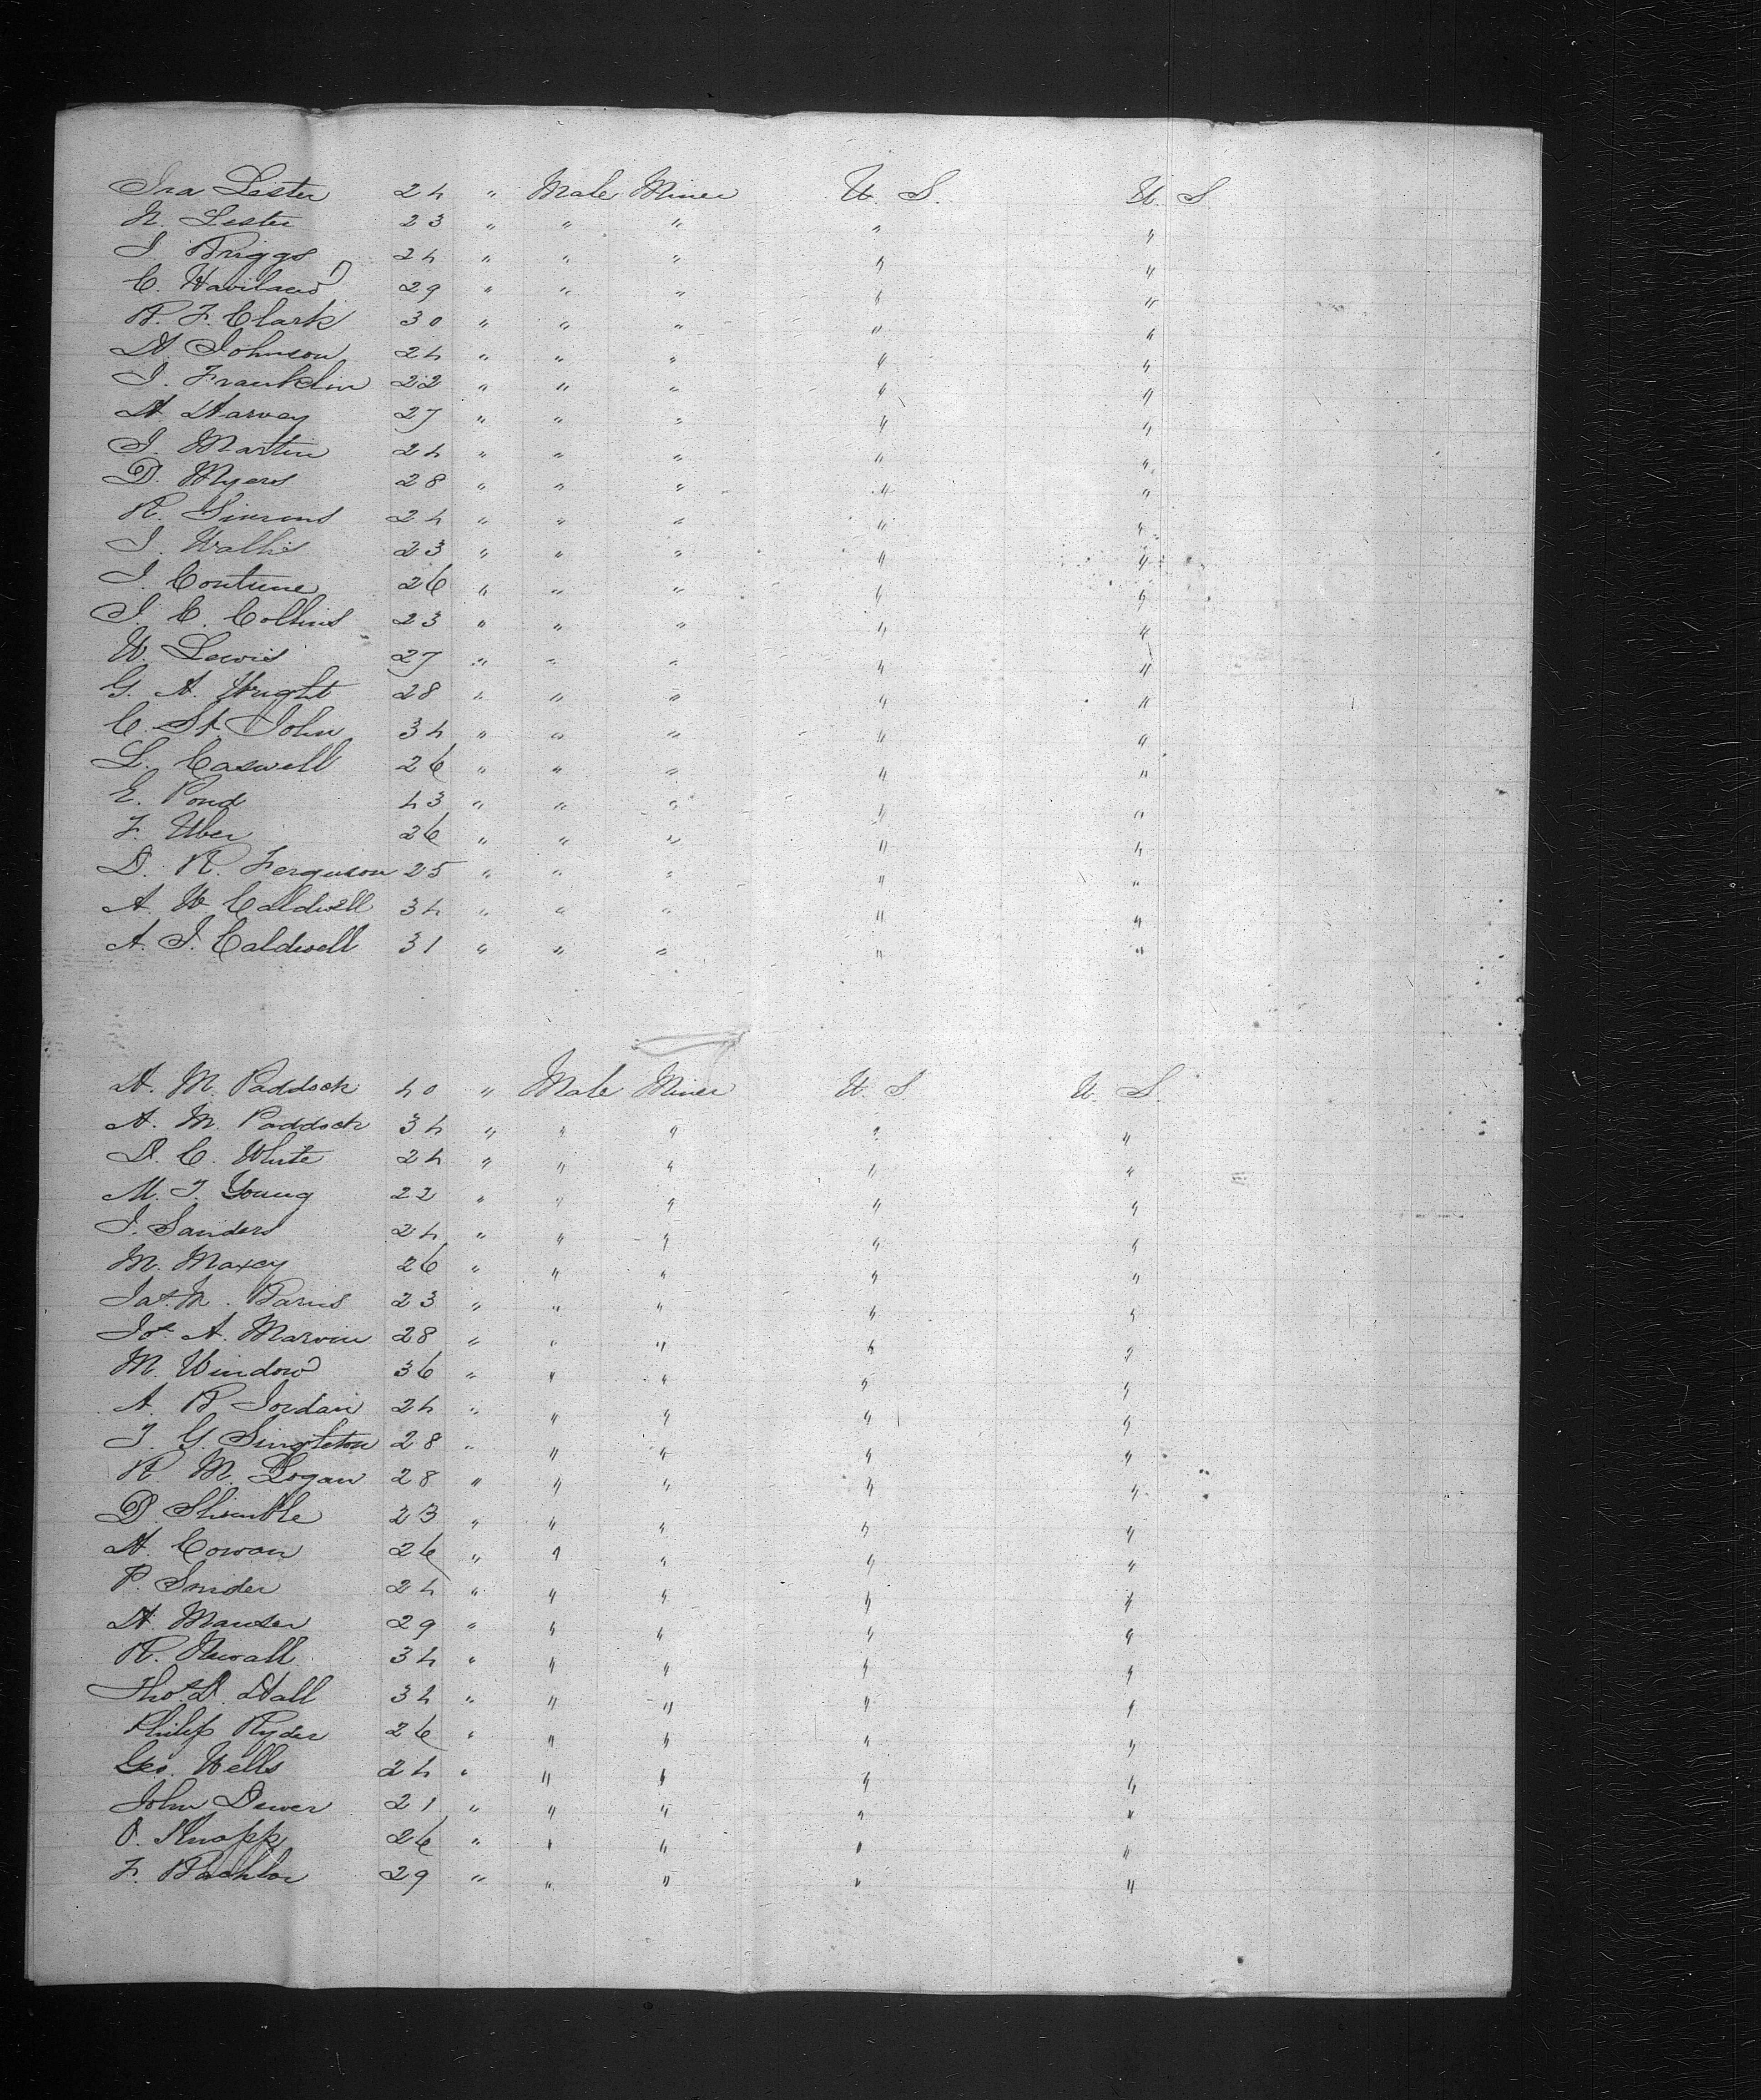 Ira Lester 24 " Male Miner U. S. U. S.
N. Lester 23 " " " " "
J. Briggs 24 " " " " "
C. Haviland 29 " " " " "
R. F. Clark 30 " " " " "
H. Johnson 24 " " " " "
J. Franklin 22 " " " " "
H. Harvey 27 " " " " "
J. Martin 24 " " " " "
D. Myers 28 " " " " "
R. Simons 24 " " " " "
J. Wallis 23 " " " " "
J. 26 " " " " "
J. C. Collins 23 " " " " "
W. Lewis 27 " " " " "
G. A. Wright 28 " " " " "
C. St. John 34 " " " " "
L. Caswell 26 " " " " "
E. Pond 43 " " " " "
F. Uber 26 " " " " "
D. R. Ferguson 25 " " " " "
A. W. Caldwell 34 " " " " "
A. J. Caldwell 31 " " " " "
H. M. Paddock 40 " Male Miner U. S. U. S.
A. M. Paddock 34 " " " " "
D. C. White 24 " " " " "
M. T. Young 22 " " " " "
J. Sanders 24 " " " " "
M. Maxey 26 " " " " "
Jas. M. 23 " " " " "
Jos. A. Marvin 28 " " " " "
M. Window 36 " " " " "
A. B. Jordan 24 " " " " "
T. G. Singleton 28 " " " " "
R. M. Logan 28 " " " " "
D. 23 " " " " "
H. Cowan 26 " " " " "
P. Snider 24 " " " " "
H. 29 " " " " "
R. Newall 34 " " " " "
Thos. D. Hall 32 " " " " "
Philip Ryder 26 " " " " "
Geo. Wells 24 " " " " "
John Dewer 21 " " " " "
O. Knapp 26 " " " " "
F. 29 " " " " "